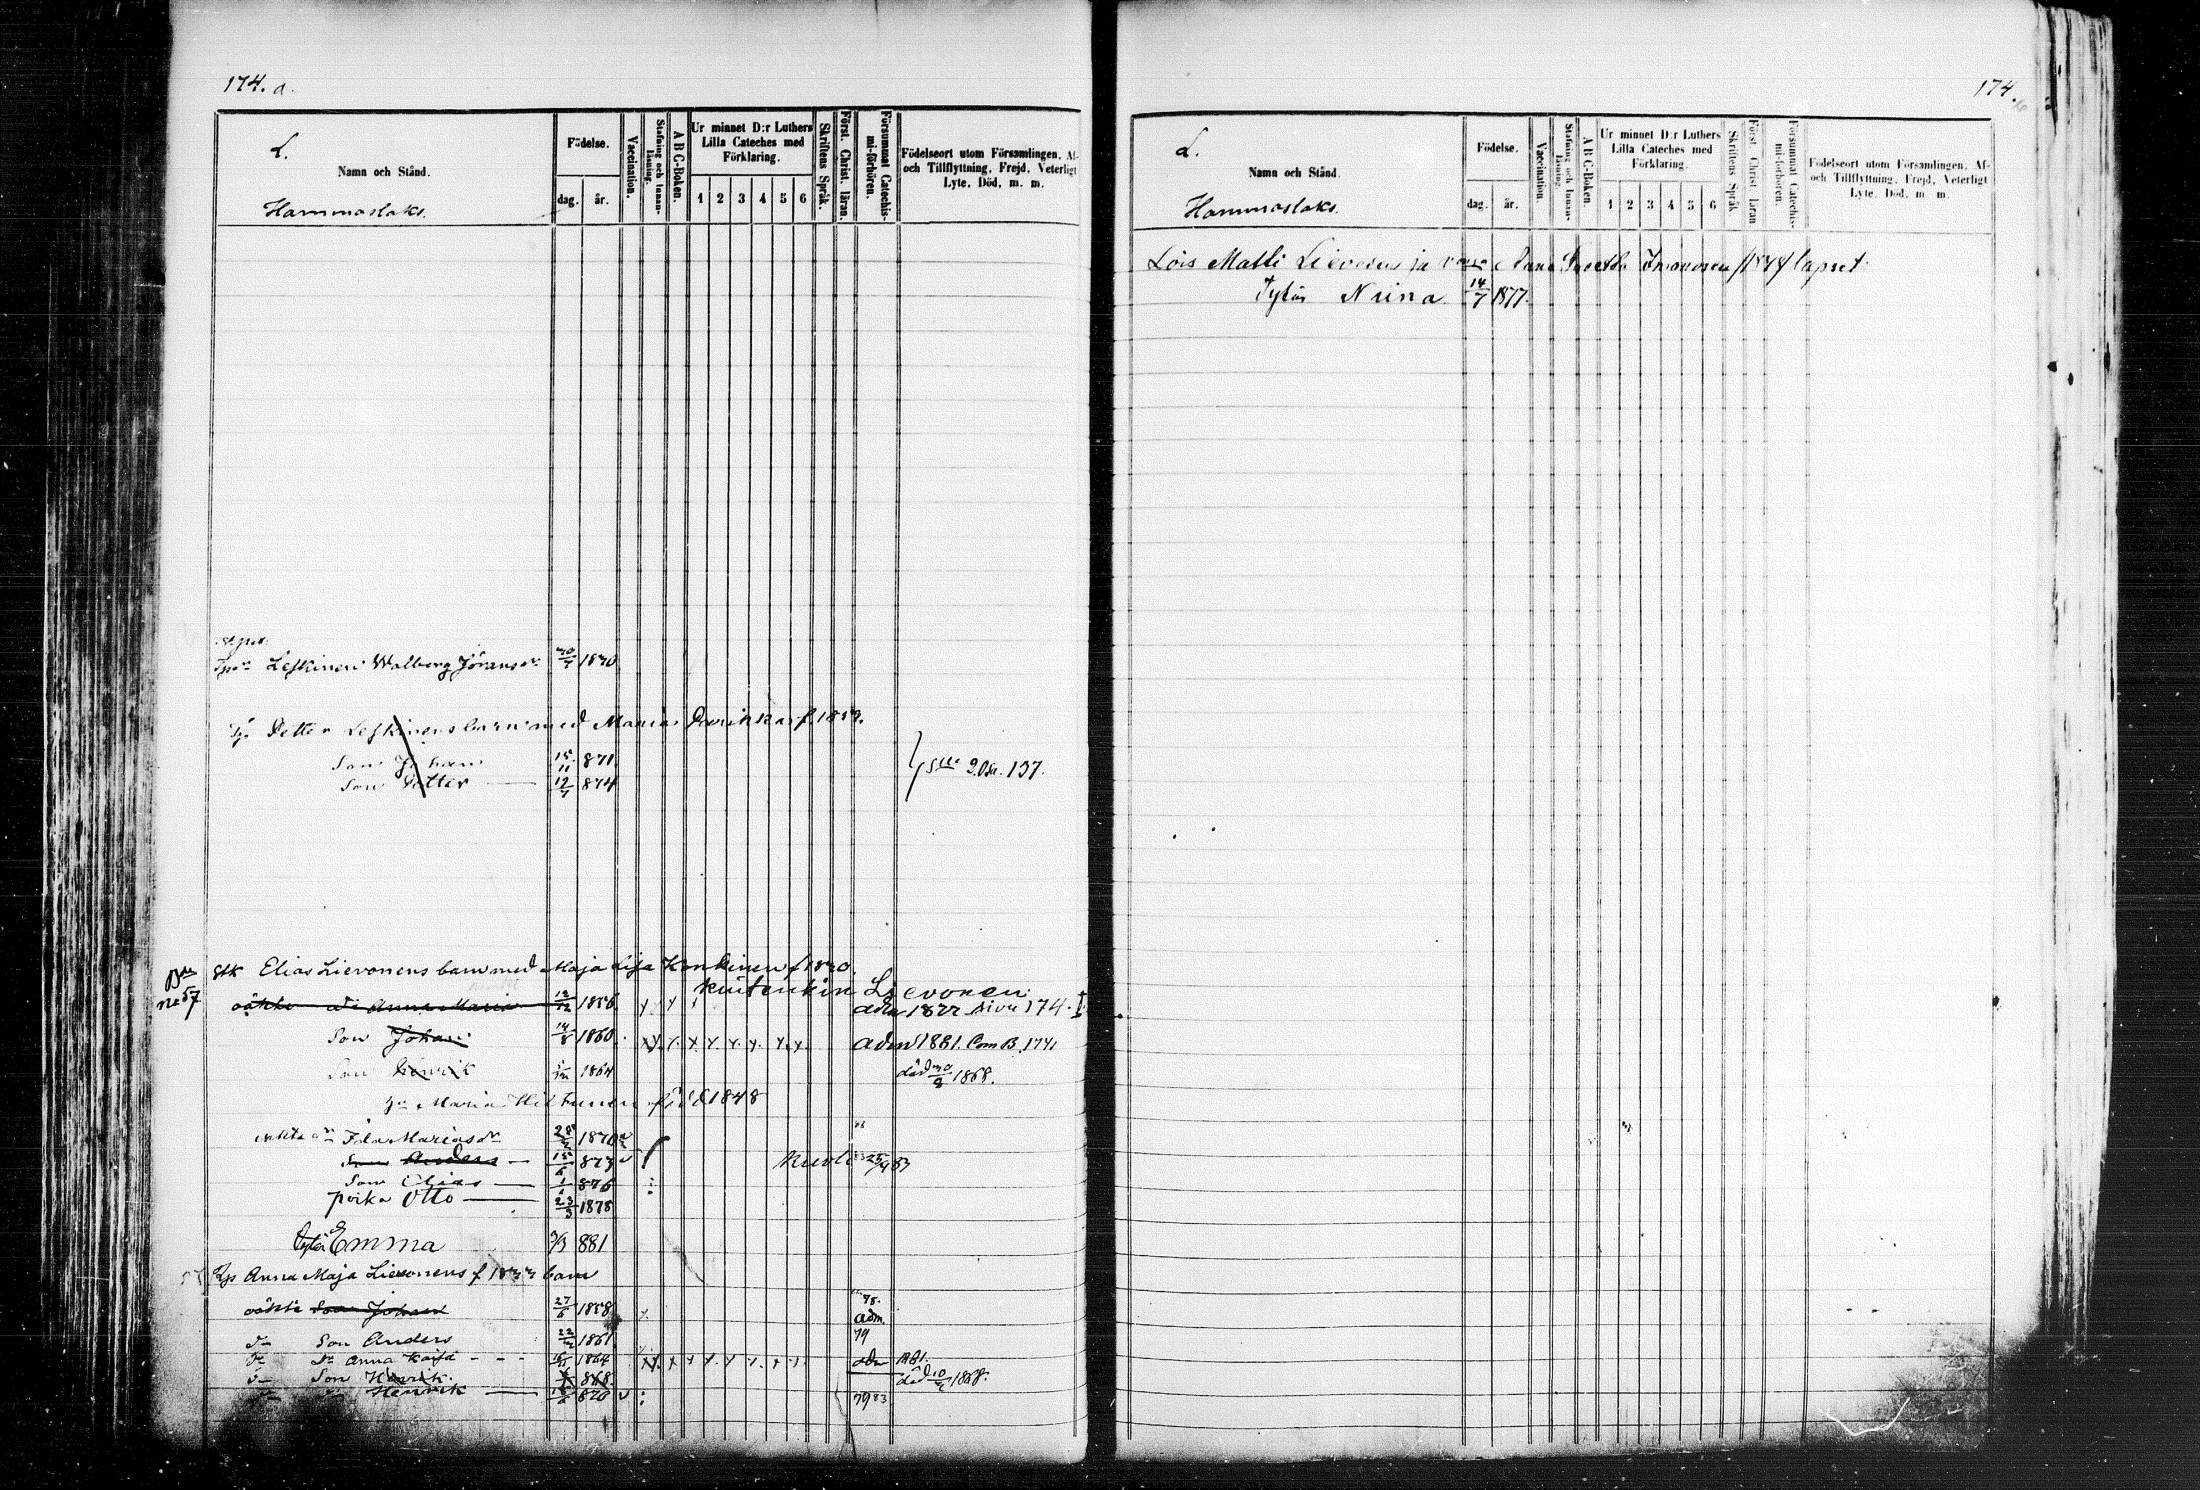 174. a.
L.
Namn och Stånd.
Hammaslaks.
Födelse.
dag. år.
Vaccination.
Stafning och Innanläsning.
A B C-Boken.
Ur minnet D:r Luthers Lilla Cateches med Förklaring.
1 2 3 4 5 6
Skriftens Språk.
Först. Christ. läran.
Försummat Catechismi-förhören.
Födelseort utom Församlingen, Af- och Tillflyttning, Frejd, Veterligt Lyte, Död, m. m.
Leskinen Walborg Göransdr 1870
Petter Leskinens barn med Maria f. 1853.
Son Johan 15/11 871
Son Petter — 12/7 874
137.
Elias Lievonens barn med Maja Lisa Konkinen f 1820.
kuitenkin Lievonen
oäkta dr Anna Maria 12/12 1856 adm 1877 sivu 174. I.
no 57
Son Johan 14/8 1860 adm 1881. Com B. 1741
Son Henrik 1864 död 30/3 1868.
Maria Hiltunen född 1848
oäkta dr Ida Mariasdr 28/2 1870
Son Anders — 15/6 873 kuoli 25/4 83
Son Elias — 1/1 876
poika Otto — 23/3 1878
tytär Emma 3/3 881
Anna Maja Lievonens f 1833 barn
oäkta Son Johan 27/6 1858 adm.
Son Anders 22/2 1861 79
Dr Anna Kaisa - - - 1864 adm 1881.
Son Henrik. 868. död 10/4 1868.
Henrik — 870 79 83
174.
L.
Namn och Stånd.
Hammaslaks.
Födelse.
dag. år.
Vaccination.
Stafning och Innanläsning.
A B C-Boken.
Ur minnet D:r Luthers Lilla Cateches med Förklaring.
1 2 3 4 5 6
Skriftens Språk
Först. Christ läran
Försummat Catechismi-förhören.
Födelseort utom Församlingen, Af- och Tillflyttning, Frejd, Veterligt Lyte, Död, m. m.
Lois Matti Lievosen ja vaimo Anna Immonen /1844/ lapset:
Tytär Niina 14/7 1877.